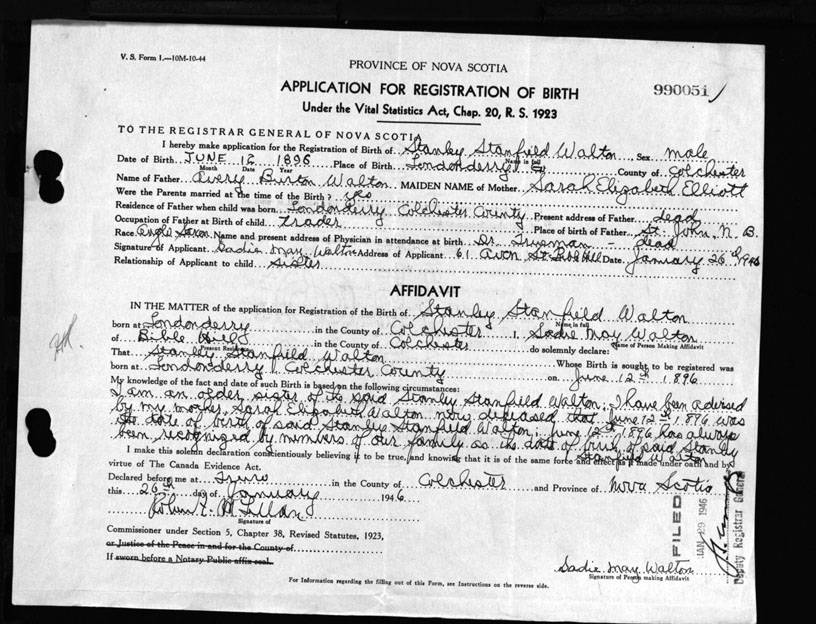 V. S. Form 1.—10M-10-44
PROVINCE OF NOVA SCOTIA
APPLICATION FOR REGISTRATION OF BIRTH
990051
Under the Vital Statistics Act, Chap. 20, R. S. 1923
TO THE REGISTRAR GENERAL OF NOVA SCOTIA
I hereby make application for the Registration of Birth of Stanley Stanfield Walton Sex male
Name in full
Date of Birth JUNE 12 1896 Place of Birth Londonderry County of Colchester
Month Date Year
Name of Father Avery Burton Walton MAIDEN NAME of Mother Sarah Elizabeth Elliott
Were the Parents married at the time of the Birth? yes
Residence of Father when child was born Londonderry Colchester County Present address of Father dead
Occupation of Father at Birth of child trader Place of birth of Father St. John N. B.
Race Anglo Saxon Name and present address of Physician in attendance at birth Dr. - dead
Signature of Applicant Sadie May Walton Address of Applicant 61 Avon St. Date January 26th
Relationship of Applicant to child sister
AFFIDAVIT
IN THE MATTER of the application for Registration of the Birth of Stanley Stanfield Walton
Name in full
born at Londonderry in the County of Colchester I, Sadie May Walton
Present Residence
Name of Person Making Affidavit
of Bible Hill in the County of Colchester do solemnly declare:
That Stanley Stanfield Walton Whose Birth is sought to be registered was
born at Londonderry Colchester County on June 12th 1896
My knowledge of the fact and date of such Birth is based on the following circumstances:
I am an older sister of the said Stanley Stanfield Walton; I have been advised
by my mother Sarah Elizabeth Walton now deceased that June 12th 1896 was
the date of birth of said Stanley Stanfield Walton; June 12th 1896 has always
been recognized by members of our family as the date of birth of said Stanley
Stanfield Walton
I make this solemn declaration conscientiously believing it to be true, and knowing that it is of the same force and effect as if made under oath and by
virtue of The Canada Evidence Act.
Declared before me at Truro in the County of Colchester and Province of Nova Scotia
this 26th day of January 1946
Signature of
Commissioner under Section 5, Chapter 38, Revised Statutes, 1923,
or Justice of the Peace in and for the County of
If sworn before a Notary Public affix seal.
FILED
JAN 29 1946
Deputy Registrar General
Sadie May Walton
Signature of Person making Affidavit
For Information regarding the filling out of this Form, see Instructions on the reverse side.